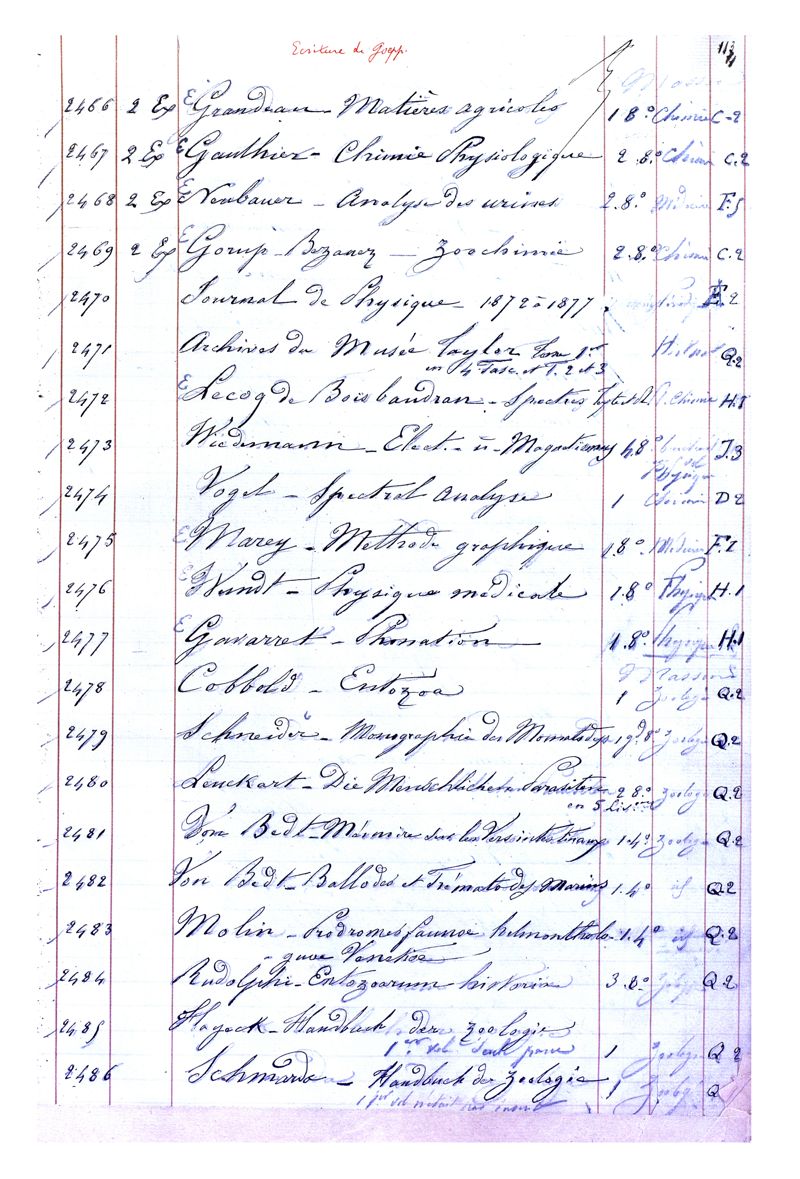 Ecriture de Goepp.
113
Masson
2466 2 Ex E Grandeau - Matières agricoles 1 8° Chimie C-2
2467 2 Ex E Gauthier - Chimie Physiologique 2 8° Chimie C.2
2468 2 Ex E Neubauer - Analyse des urines 2.8° Médecine F.5
2469 2 Ex E Gorup-Bezanez — Zoochimie 2.8° Chimie C.2
2470 Journal de Physique - 1872 à 1877 2
2471 Archives du Musée Teyler Tome 1er H. nat Q.2
en 4 Fasc. et T. 2 et 3
2472 E Lecoq de Boisbaudran - Spectres Chimie H.1
2473 Wiedemann - Elect.- ü - Magnetismus 4.8° J.3
Physique
2474 Vogel - Spectral Analyse 1 Chimie D2
2475 E Marey - Méthode graphique 1.8° Médecine F.1
2476 E Wundt - Physique médicale 1.8° Physique H.1
2477 E Gavarret - Phonation 1.8° Physique H.1
Masson
2478 Cobbold - Entozoa 1 Zoologie Q.2
2479 Schneider - Monographie der Nematoden 1 gd 8° Zoologie Q.2
2480 Leuckart - Die Menschlichen Parasiten 2 8° Zoologie Q.2
en 5 liv
2481 Bedt - Mémoire sur les Vers intestinaux 1.4° Zoologie Q.2
2482 Von Bedt - Ballodes et Trématodes Marins 1.4° id Q.2
2483 Molin - Prodromus faunae helmintholo- 1.4° id Q.2
gicae Venetae
2484 Rudolphi - Entozoorum historia 3.8° Zologie Q.2
2485 Hayeck - Handbuch der Zoologie
1er vol. seul paru 1 Zoologie Q 2
2486 Schmarda - Handbuch der Zoologie 1 Zoologie Q
1 er vol n'était pas inscrit